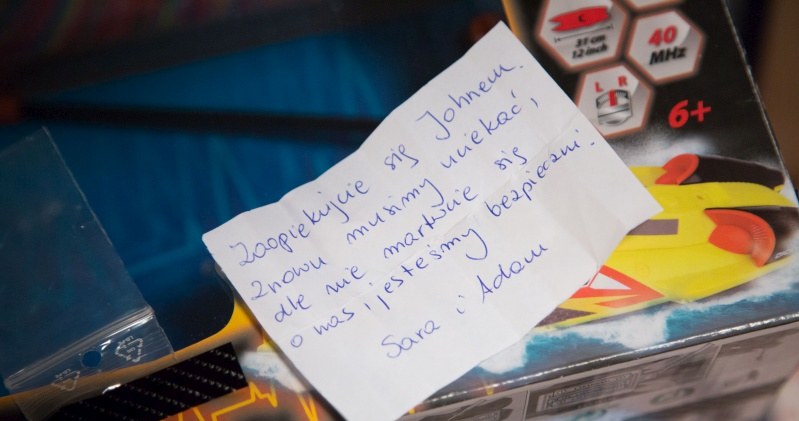 Zaopiekujcie się Johnem.
Znowu musimy uciekać,
ale nie martwcie się
o nas i jesteśmy bezpieczni.
Sara i Adam
C
31 cm
12 inch
40
MHz
L R
6+